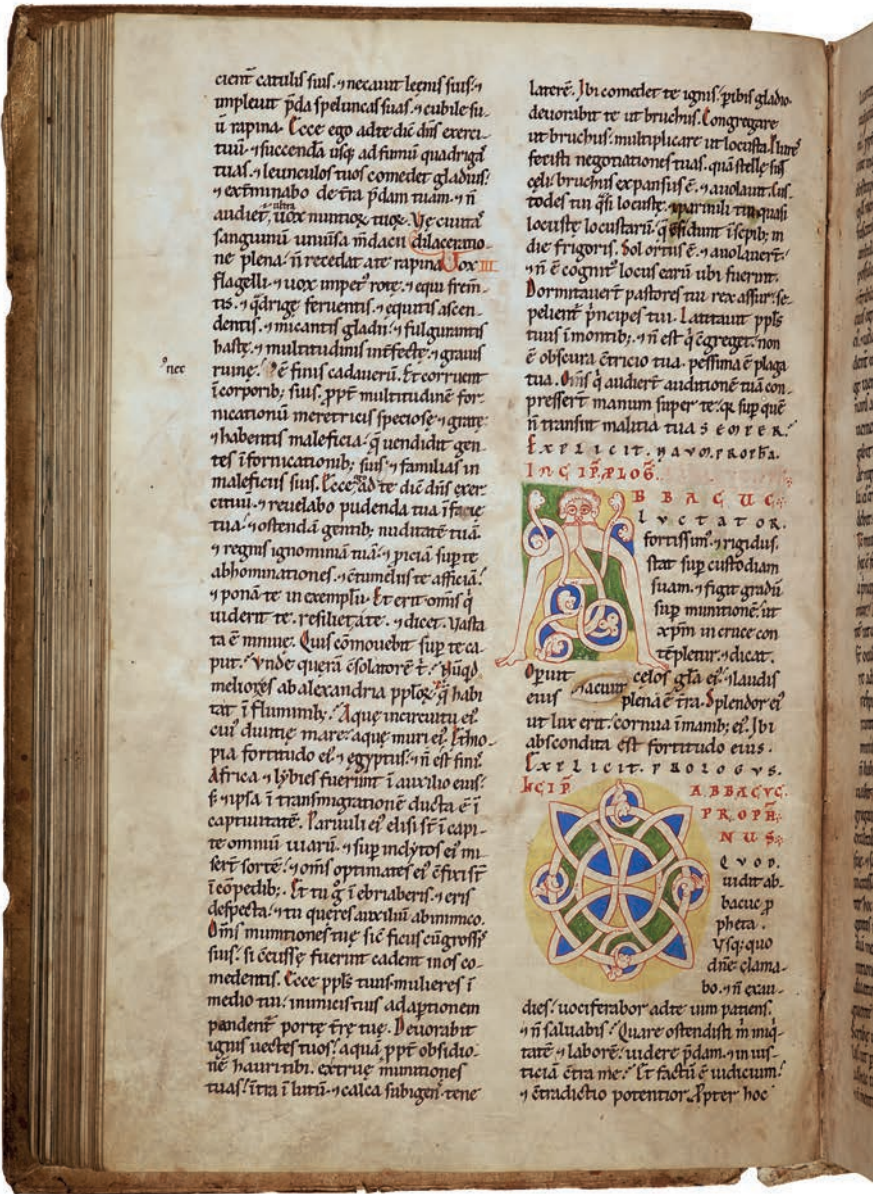 cienť catulis suis. ⁊ necauit leęnis suis. ⁊
impleuit p̄da speluncas suas. ⁊ cubile su-
ū rapina. Ecce ego ad te dic̄ dn̄s exerci-
tuū. ⁊ succendā usq; ad fumū quadrigaſ
tuas. ⁊ leunculos tuos comedet gladius.
⁊ ext̄minabo de t̄ra p̄dam tuam. ⁊ n̄
ultra
audiet̄ uox nuntioꝝ tuoꝝ. Vę ciuitaſ
sanguinū uniūsa m̄dacii dilaceratio-
ne plena. n̄ recedat a te rapina Vox III
flagelli ⁊ uox impet' rotę. ⁊ equi frem̄-
tis. ⁊ q̄drigę feruentis. ⁊ equitis ascen-
dentis. ⁊ micantis gladii. ⁊ fulgurantis
hastę. ⁊ multitudinis int̄fectę. ⁊ grauis
nec
ruinę. ē finis cadauerū. Et corruent
ī corporib; suis. ꝓpt̄ multitudinē for-
nicationū meretricis speciosę. ⁊ gratę
⁊ habentis maleficia. q̄ uendidit gen-
tes ī fornicationib; suis. ⁊ familias in
maleficiis suis. Ecce ad te dic̄ dn̄s exer-
cituū. ⁊ reuelabo pudenda tua ī facię
tua. ⁊ ostendā gentib; nuditatē tuā.
⁊ regnis ignominiā tuā. ⁊ ꝓiciā sup̄ te
abhominationes. ⁊ c̄tumeliis te afficiā.
⁊ ponā te in exemplū. Et erit omīs q̇
uiderit te. resiliet a te. ⁊ dicet. Vasta
ta ē niniue. Quis cōmouebit sup̄ te ca-
put. Vnde querā c̄solatorē t̄. Nūqd
meliores ab alexandria pplōꝝ. q̄ habi
tat ī fluminib;. Aquę in circuitu ei'
cui' diuitię mare. aquę muri ei'. Ethio-
pia fortitudo ei' ⁊ egyptus. ⁊ n̄ est finiſ
Africa ⁊ lybies fuerunt ī auxilio eius.
s; ⁊ ipsa ī transmigrationē ducta ē ī
captiuitatē. Paruuli ei' elisi s̄t ī capi-
te omniū uiarū. ⁊ sup̄ inclytos ei' mi-
sert̄ sortē. ⁊ om̄s optimates ei' c̄fixi s̄t
ī cōpedib;. Et tu g̊ ī ebriaberis. ⁊ eris
despecta. ⁊ tu queres auxiliū ab inimico.
Om̄s munitiones tuę sic̄ ficus cū grossiſ
suis. si c̄cussę fuerint cadent in os co-
medentis. Ecce pplś tuus mulieres ī
medio tui. inimicis tuis adaꝑtionem
pandent̄ portę t̄rę tuę. Deuorabit
ignis uectes tuos. aquā ꝓpt̄ obsidio-
nē hauri tibi. extrue munitiones
tuas. ītra ī lutū. ⁊ calca subigens. tene
laterē. Ibi comedet te ignis. ꝑibis gladio.
deuorabit te ut bruchus. Congregare
ut bruchus. multiplicare ut locusta. Plureſ
fecisti negotiationes tuas. quā stellę sīt
cęli. bruchus expansus ē. ⁊ auolauit. Cus-
todes tui q̊si locustę. ⁊ paruuli tui quasi
locustę locustarū. q̄ c̄sidunt ī sepib; in
die frigoris. Sol ortus ē. ⁊ auolauert̄.
⁊ n̄ ē cognit' locus earū ubi fuerint.
Dormitauert̄ pastores tui rex assur. se-
pelient̄ p̓ncipes tui. Latitauit pplś
tuus ī montib;. ⁊ n̄ est q̇ c̄greget. non
ē obscura c̄tricio tua. pessima ē plaga
tua. Om̄s q̇ audiert̄ auditionē tuā con-
pressert̄ manum super te. qꝛ sup̄ quē
n̄ transiit malitia tua SEMPER.
EXPLICIT. NAVM. PROPHA.
INCIP̄ PLOḠ.
ABBACUC
LVCTATOR.
fortissim'. ⁊ rigidus.
stat sup̄ custodiam
suam. ⁊ figit gradū
sup̄ munitionē. ut
xp̄m in cruce con
tēpletur. ⁊ dicat.
Operuit celos gla ei'. ⁊ laudis
eius plena ē t̄ra. Splendor ei'
ut lux erit. cornua ī manib; ei'. Ibi
abscondita est fortitudo eius.
EXPLICIT. PROLOGVS.
INCIP̄ ABBACVC.
PROPH̄
NUS
QVOD.
uidit ab-
bacuc ꝓ
pheta.
Vsq; quo
dn̄e clama-
bo. ⁊ n̄ exau-
dies. uociferabor ad te uim patiens.
⁊ n̄ saluabis. Quare ostendisti m̄ iniq-
tatē ⁊ laborē. uidere p̄dam. ⁊ in iusti-
ticiā c̄tra me. Et factū ē iudiciū.
⁊ c̄tradictio potentior. Ꝓpter hoc